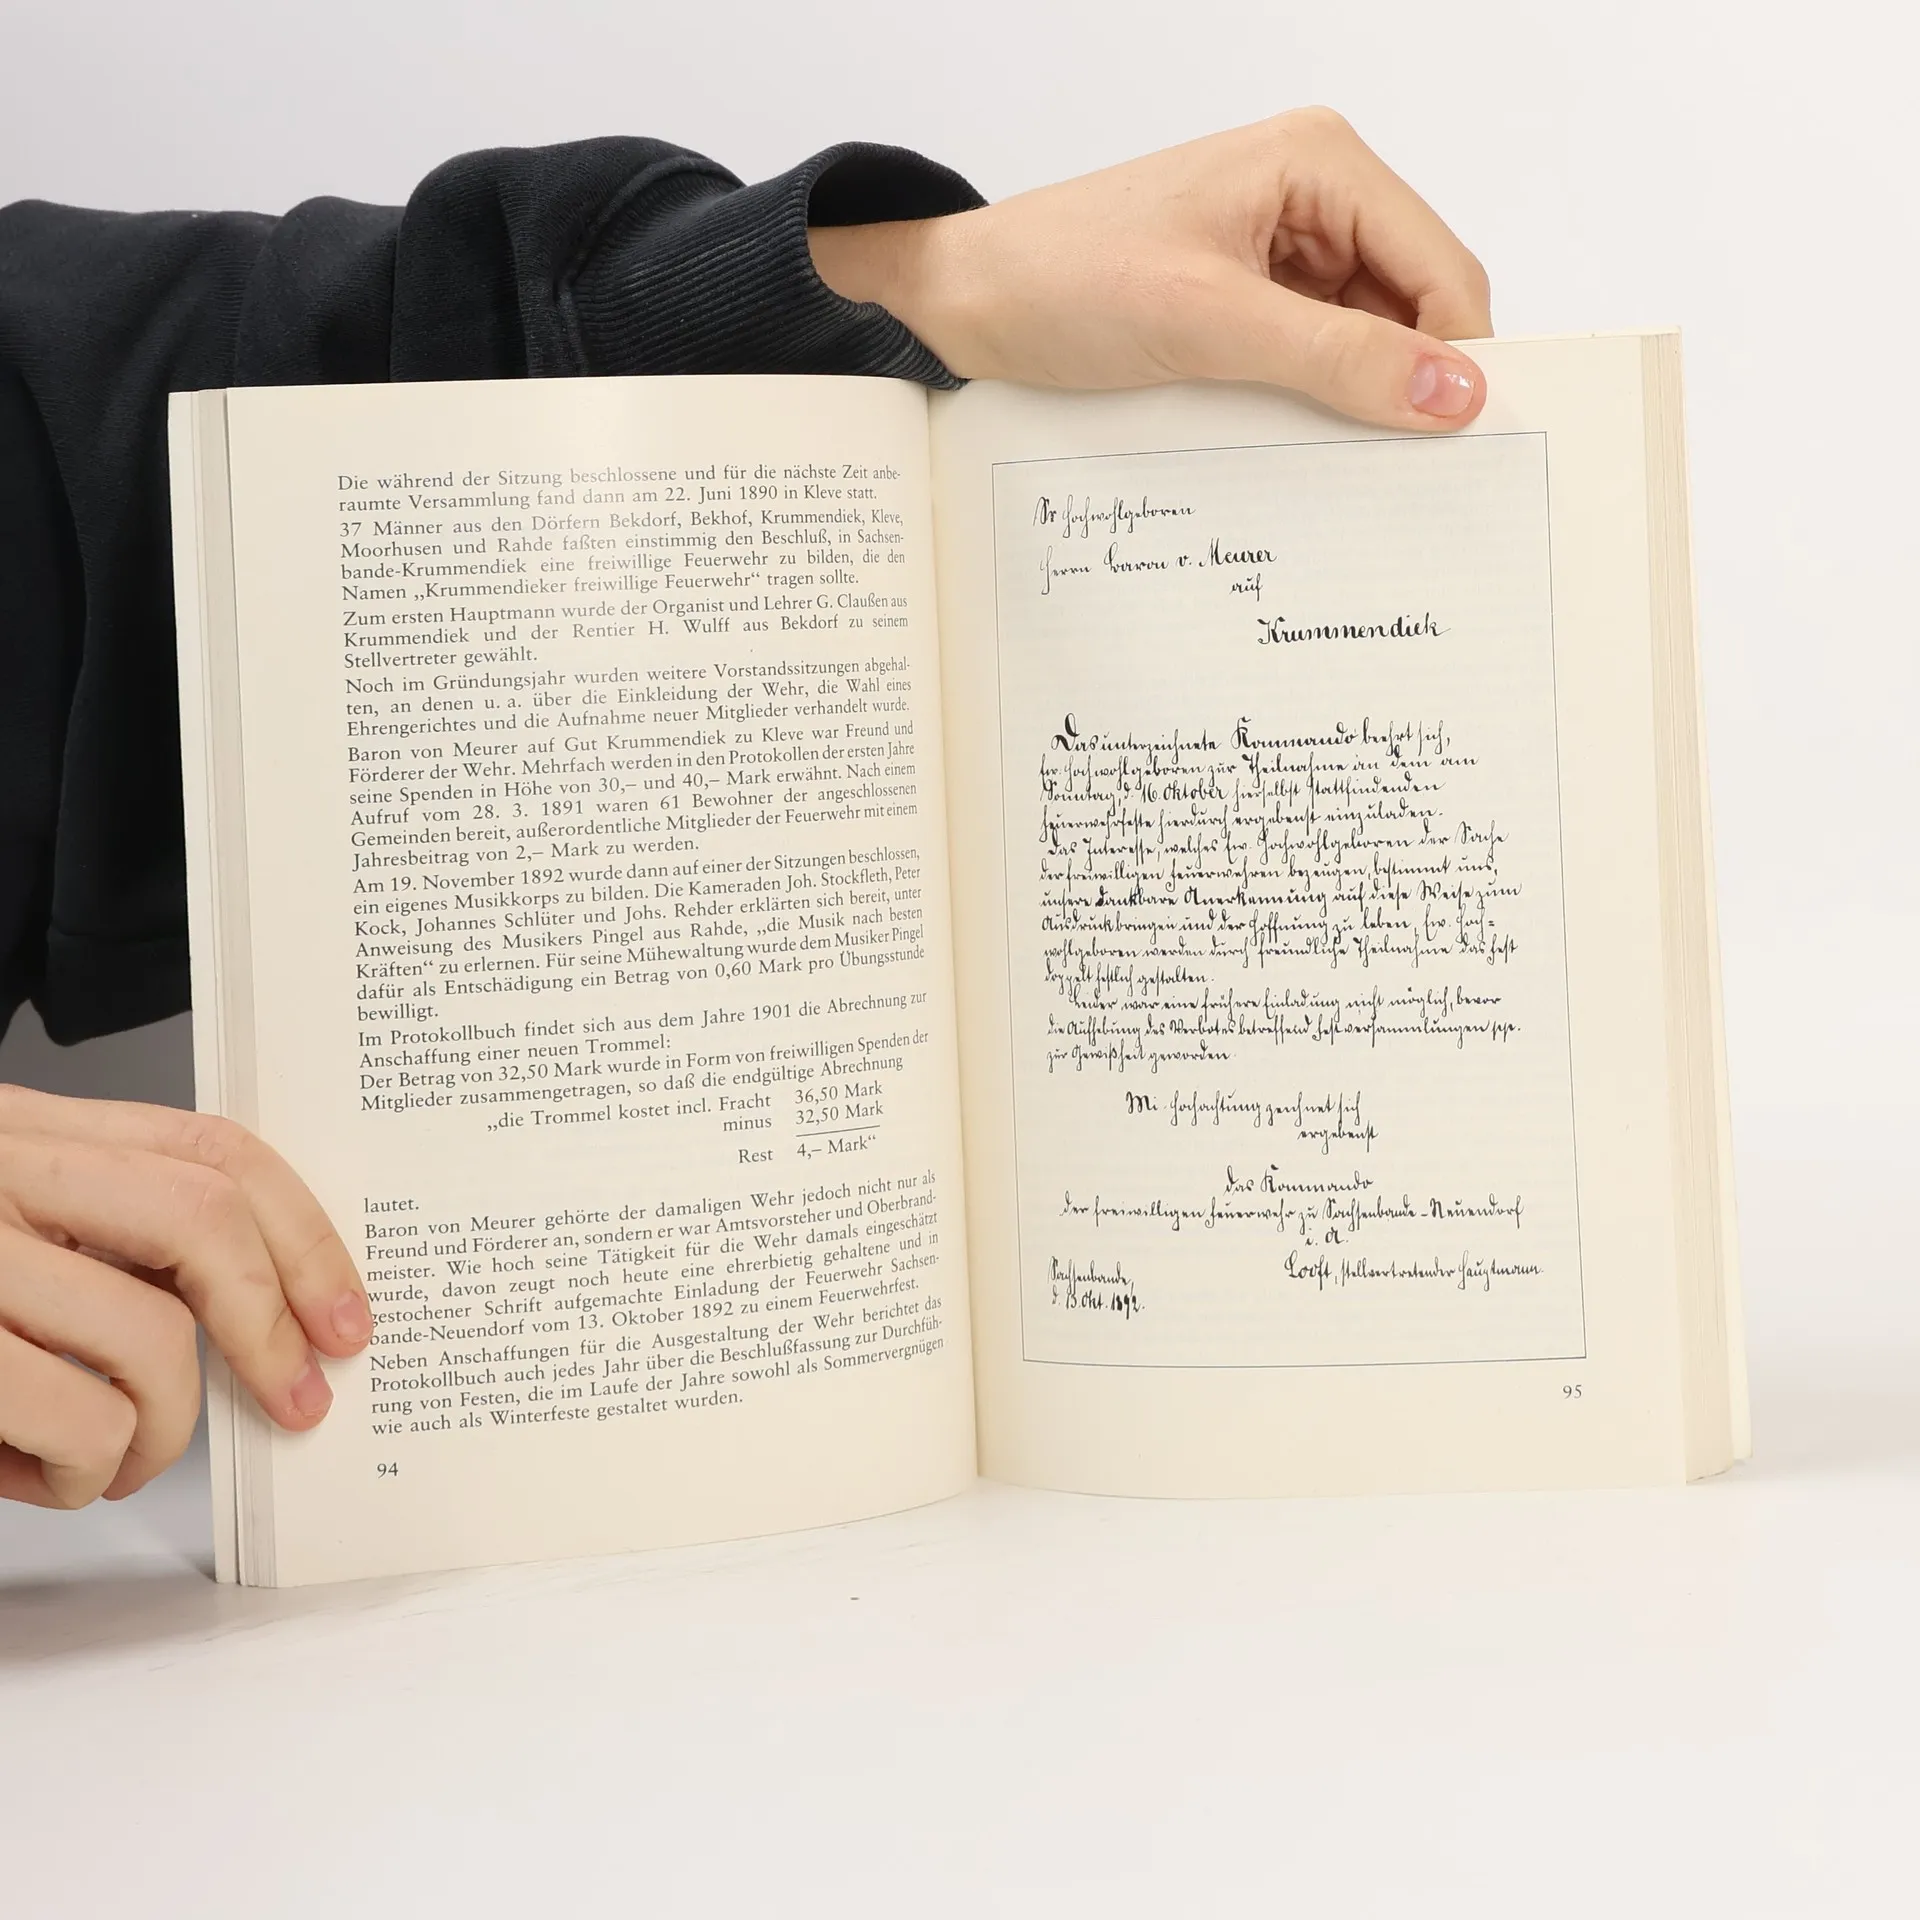 Die während der Sitzung beschlossene und für die nächste Zeit anbe-
raumte Versammlung fand dann am 22. Juni 1890 in Kleve statt.
37 Männer aus den Dörfern Bekdorf, Bekhof, Krummendiek, Kleve,
Moorhusen und Rahde faßten einstimmig den Beschluß, in Sachsen-
bande-Krummendiek eine freiwillige Feuerwehr zu bilden, die den
Namen „Krummendieker freiwillige Feuerwehr“ tragen sollte.
Zum ersten Hauptmann wurde der Organist und Lehrer G. Claußen aus
Krummendiek und der Rentier H. Wulff aus Bekdorf zu seinem
Stellvertreter gewählt.
Noch im Gründungsjahr wurden weitere Vorstandssitzungen abgehal-
ten, an denen u. a. über die Einkleidung der Wehr, die Wahl eines
Ehrengerichtes und die Aufnahme neuer Mitglieder verhandelt wurde.
Baron von Meurer auf Gut Krummendiek zu Kleve war Freund und
Förderer der Wehr. Mehrfach werden in den Protokollen der ersten Jahre
seine Spenden in Höhe von 30,– und 40,– Mark erwähnt. Nach einem
Aufruf vom 28. 3. 1891 waren 61 Bewohner der angeschlossenen
Gemeinden bereit, außerordentliche Mitglieder der Feuerwehr mit einem
Jahresbeitrag von 2,– Mark zu werden.
Am 19. November 1892 wurde dann auf einer der Sitzungen beschlossen,
ein eigenes Musikkorps zu bilden. Die Kameraden Joh. Stockfleth, Peter
Kock, Johannes Schlüter und Johs. Rehder erklärten sich bereit, unter
Anweisung des Musikers Pingel aus Rahde, „die Musik nach besten
Kräften“ zu erlernen. Für seine Mühewaltung wurde dem Musiker Pingel
dafür als Entschädigung ein Betrag von 0,60 Mark pro Übungsstunde
bewilligt.
Im Protokollbuch findet sich aus dem Jahre 1901 die Abrechnung zur
Anschaffung einer neuen Trommel:
Der Betrag von 32,50 Mark wurde in Form von freiwilligen Spenden der
Mitglieder zusammengetragen, so daß die endgültige Abrechnung
„die Trommel kostet incl. Fracht 36,50 Mark
minus 32,50 Mark
Rest 4,– Mark“
lautet.
Baron von Meurer gehörte der damaligen Wehr jedoch nicht nur als
Freund und Förderer an, sondern er war Amtsvorsteher und Oberbrand-
meister. Wie hoch seine Tätigkeit für die Wehr damals eingeschätzt
wurde, davon zeugt noch heute eine ehrerbietig gehaltene und in
gestochener Schrift aufgemachte Einladung der Feuerwehr Sachsen-
bande-Neuendorf vom 13. Oktober 1892 zu einem Feuerwehrfest.
Neben Anschaffungen für die Ausgestaltung der Wehr berichtet das
Protokollbuch auch jedes Jahr über die Beschlußfassung zur Durchfüh-
rung von Festen, die im Laufe der Jahre sowohl als Sommervergnügen
wie auch als Winterfeste gestaltet wurden.
94
Sr Hochwohlgeboren
Herrn Baron v. Meurer
auf
Krummendiek
Das unterzeichnete Kommando beehrt sich,
Ew. Hochwohlgeboren zur Theilnahme an dem am
Sonntag, d. 16. Oktober hierselbst stattfindenden
Feuerwehrfeste hierdurch ergebenst einzuladen.
Das Interesse, welches Ew. Hochwohlgeboren der Sache
der freiwilligen Feuerwehren bezeugen, bestimmt uns,
unsere dankbare Anerkennung auf diese Weise zum
Ausdruck bringen und der Hoffnung zu leben, Ew. Hoch=
wohlgeboren werden durch freundliche Theilnahme das Fest
doppelt festlich gestalten.
Leider war eine frühere Einladung nicht möglich, bevor
die Aufhebung des Verbotes betreffend Festversammlungen
zur Gewißheit geworden.
Mi Hochachtung zeichnet sich
ergebenst
das Kommando
der freiwilligen Feuerwehr zu Sachsenbande-Neuendorf
i. A.
Looft, stellvertretender Hauptmann.
Sachsenbande,
d. 13. Okt. 1892.
95